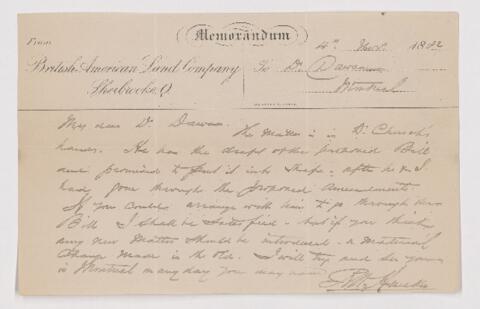 Memorandum
From
4th Nov. 1882
British American Land Company
To Dr. Dawson
Sherbrooke, Q.
Montreal
My dear Dr. Dawson. The matter is in Dr. Church's
hands. He has the draft of the proposed Bill
and promised to put it into shape - after he & I
had gone through the proposed amendments.
If you could arrange with him to go through the
Bill I shall be satisfied - but if you think
any new matter should be introduced - or material
change made in the old. I will try and see you
in Montreal on any day you may name